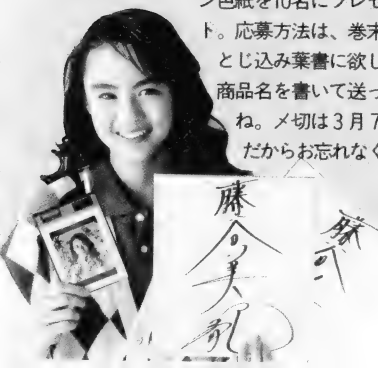 ン色紙を10名にプレゼ
ト。応募方法は、巻末
とじ込み葉書に欲し
商品名を書いて送っ
ね。〆切は3月7
だからお忘れなく
藤谷美紀